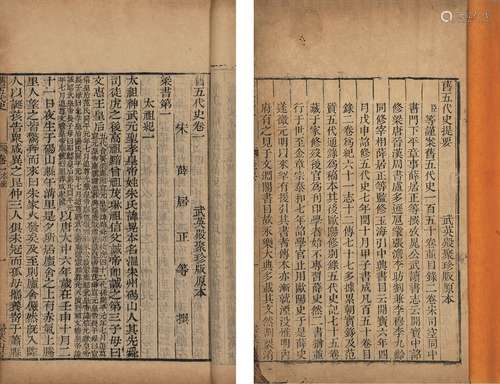 舊五代史提要 武英殿聚珍版原本
臣等謹案舊五代史一百五十卷並目錄二卷宋司空同中
書門下平章事薛居正等撰考晁公武讀書志云開寶中詔
修梁唐晉漢周書盧多遜扈蒙張澹李昉劉兼李穆李九齡
同修宰相薛居正等監修玉海引中興書目云開寶六年四
月戊申詔修五代史七年閏十月甲子書成凡百五十卷目
錄二卷為紀六十一志十二傳七十七多據累朝實錄及范
質五代通錄為稿本其後歐陽修別撰五代史記七十五卷
藏于家修歿後官為刊印學者始不專習薛史然二書猶並
行于世至金章宗泰和七年詔學官止用歐陽史於是薛史
遂微元明以來罕有援引其書者傳本亦漸就湮沒惟明內
府有之見于文淵閣書目故永樂大典多載其文然割裂淆
舊五代史卷一 武英殿聚珍版原本
宋 薛居正等 撰
梁書第一
太祖紀一
太祖神武元聖孝皇帝姓朱氏諱晃本名溫宋州碭山人其先舜
司徒虎之後高祖黯曾祖茂琳祖信父誠帝即誠之第三子母曰
文惠王皇后
以唐大中六年歲在壬申十月二
十一日夜生于碭山縣午溝里是夕所居廬舍之上有赤氣上騰
里人望之皆驚奔而來曰朱家火發矣及至則廬舍儼然既入鄰
人以誕孩告衆咸異之昆仲三人俱未冠而孤母攜養寄于蕭縣